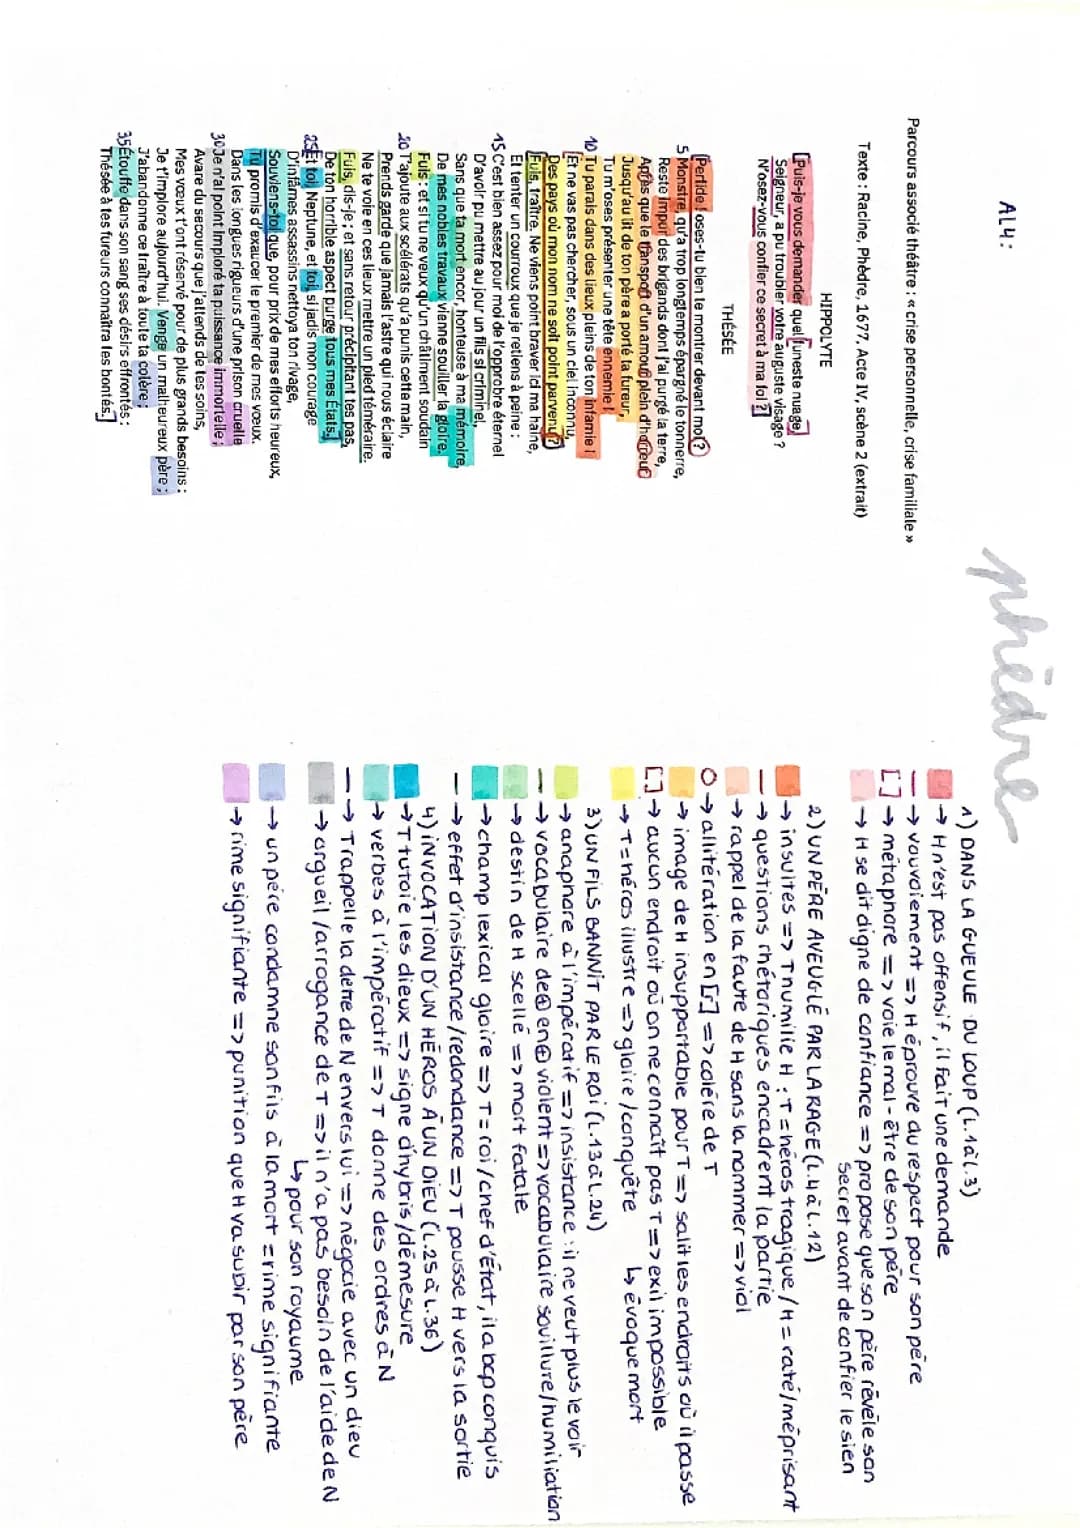 AL4:
phèdre
Parcours associé théâtre : « crise personnelle, crise familiale »
Texte : Racine, Phèdre, 1677, Acte IV, scène 2 (extrait)
HIPPOLYTE
[Puis-je vous demander quel [funeste nuage]
Seigneur, a pu troubler votre auguste visage ?
N'osez-vous confier ce secret à ma foi ?]
THÉSÉE
[Perfide ! oses-tu bien te montrer devant moi ?
5 Monstre, qu'a trop longtemps épargné le tonnerre,
Reste impur des brigands dont j'ai purgé la terre,
Après que le transport d'un amour plein d'horreur
Jusqu'au lit de ton père a porté ta fureur,
Tu m'oses présenter une tête ennemie !
10 Tu parais dans des lieux pleins de ton infamie !
[Et ne vas pas chercher, sous un ciel inconnu,
Des pays où mon nom ne soit point parvenu ?]
[Fuis, traître. Ne viens point braver ici ma haine,
Et tenter un courroux que je retiens à peine :
15 C'est bien assez pour moi de l'opprobre éternel
D'avoir pu mettre au jour un fils si criminel,
Sans que ta mort encor, honteuse à ma mémoire,
De mes nobles travaux vienne souiller la gloire.
Fuis : et si tu ne veux qu'un châtiment soudain
20 T'ajoute aux scélérats qu'a punis cette main,
Prends garde que jamais l'astre qui nous éclaire
Ne te voie en ces lieux mettre un pied téméraire.
Fuis, dis-je ; et sans retour précipitant tes pas,
De ton horrible aspect purge tous mes États.]
25 Et toi, Neptune, et toi, si jadis mon courage
D'infâmes assassins nettoya ton rivage,
Souviens-toi que, pour prix de mes efforts heureux,
Tu promis d'exaucer le premier de mes vœux.
Dans les longues rigueurs d'une prison cruelle
30 Je n'ai point imploré ta puissance immortelle ;
Avare du secours que j'attends de tes soins,
Mes vœux t'ont réservé pour de plus grands besoins :
Je t'implore aujourd'hui. Venge un malheureux père ;
J'abandonne ce traître à toute ta colère ;
35 Étouffe dans son sang ses désirs effrontés :
Thésée à tes fureurs connaîtra tes bontés.]
1) DANS LA GUEULE DU LOUP (L.1 à L.3)
→ H n'est pas offensif, il fait une demande
— → vouvoiement => H éprouve du respect pour son père
[] → métaphore => voie le mal-être de son père
→ H se dit digne de confiance => propose que son père révèle son
secret avant de confier le sien
2) UN PÈRE AVEUGLÉ PAR LA RAGE (L.4 à L.12)
→ insultes => T humilie H : T = héros tragique / H = raté/méprisant
— → questions rhétoriques encadrent la partie
→ rappel de la faute de H sans la nommer => viol
O → allitération en [r] => colère de T
→ image de H insupportable pour T => salit les endroits où il passe
[] → aucun endroit où on ne connaît pas T => exil impossible
→ T = héros illustre => gloire/conquête
↳ évoque mort
3) UN FILS BANNIT PAR LE ROI (L.13 à L.24)
→ anaphore à l'impératif => insistance : il ne veut plus le voir
— → vocabulaire de ⊕ en ⊕ violent => vocabulaire souillure/humiliation
→ destin de H scellé => mort fatale
→ champ lexical gloire => T = roi/chef d'État, il a bcp conquis
— → effet d'insistance/redondance => T pousse H vers la sortie
4) INVOCATION D'UN HÉROS À UN DIEU (L.25 à L.36)
→ T tutoie les dieux => signe d'hybris/démesure
→ verbes à l'impératif => T donne des ordres à N
— → T rappelle la dette de N envers lui => négocie avec un dieu
→ orgueil/arrogance de T => il n'a pas besoin de l'aide de N
↳ pour son royaume
→ un père condamne son fils à la mort = rime signifiante
→ rime signifiante => punition que H va subir par son père